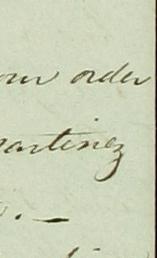 our order
artinez